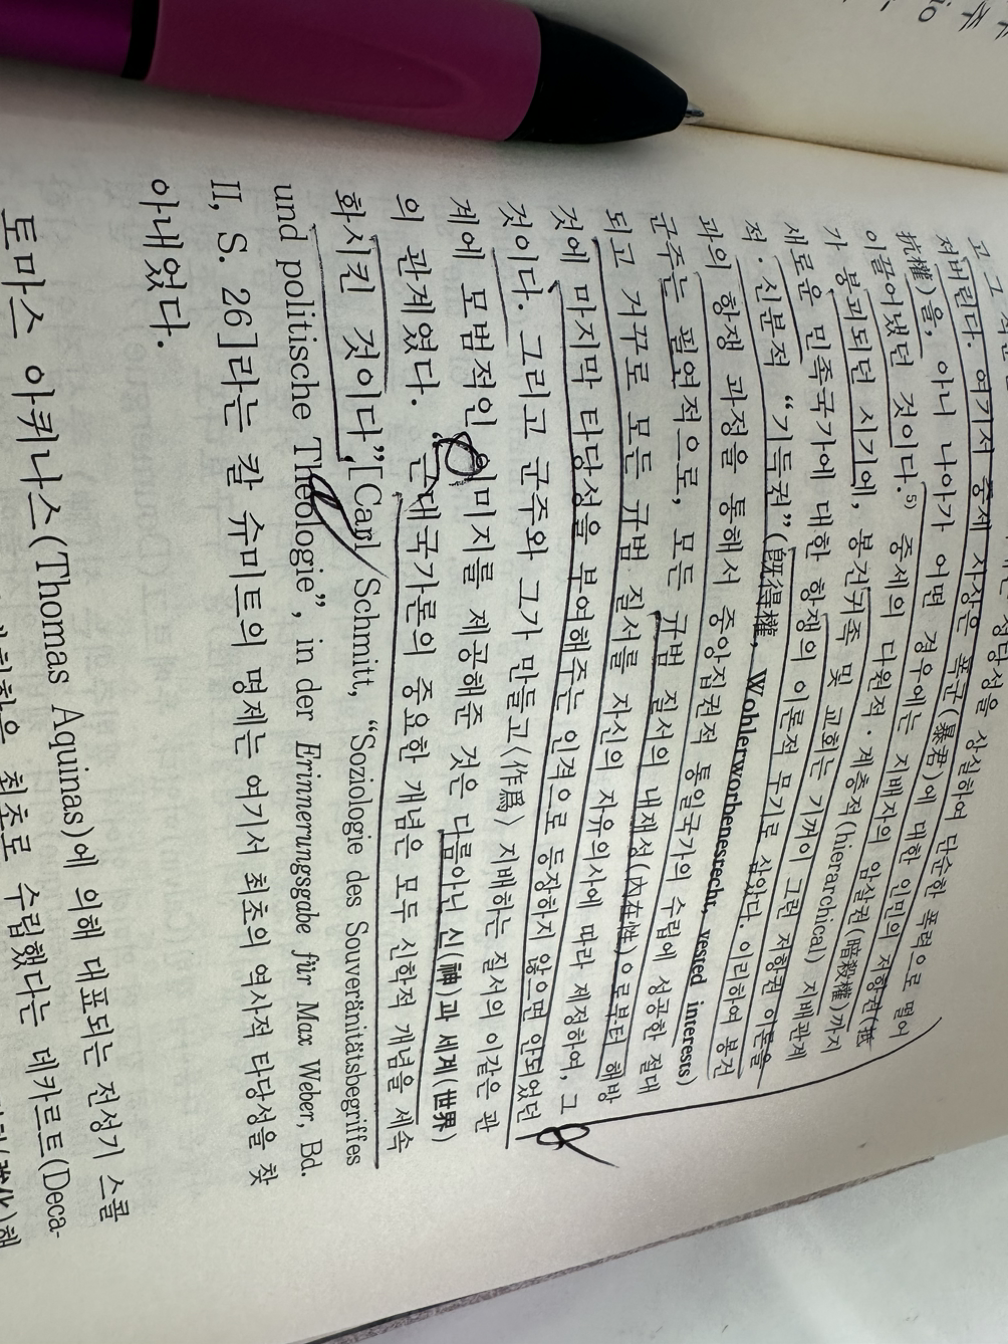 정당성을 상실하여 단순한 폭력으로 떨어
져버린다. 여기서 중세 사상은 폭군(暴君)에 대한 인민의 저항권(抵
抗權)을, 아니 나아가 어떤 경우에는 지배자의 암살권(暗殺權)까지
이끌어냈던 것이다.⁵⁾ 중세의 다원적·계층적(hierarchical) 지배관계
가 붕괴되던 시기에, 봉건귀족 및 교회는 기꺼이 그런 저항권 이론을
새로운 민족국가에 대한 항쟁의 이론적 무기로 삼았다. 이리하여 봉건
적·신분적 “기득권”(旣得權, Wohlerworbenesrecht, vested interests)
과의 항쟁 과정을 통해서 중앙집권적 통일국가의 수립에 성공한 절대
군주는 필연적으로, 모든 규범 질서의 내재성(內在性)으로부터 해방
되고 거꾸로 모든 규범 질서를 자신의 자유의사에 따라 제정하여, 그
것에 마지막 타당성을 부여해주는 인격으로 등장하지 않으면 안되었던
것이다. 그리고 군주와 그가 만들고〈作爲〉 지배하는 질서의 이같은 관
계에 모범적인 이미지를 제공해준 것은 다름아닌 신(神)과 세계(世界)
의 관계였다. “근대국가론의 중요한 개념은 모두 신학적 개념을 세속
화시킨 것이다”[Carl Schmitt, “Soziologie des Souveränitätsbegriffes
und politische Theologie”, in der Erinnerungsgabe für Max Weber, Bd.
II, S. 26]라는 칼 슈미트의 명제는 여기서 최초의 역사적 타당성을 찾
아내었다.
토마스 아퀴나스(Thomas Aquinas)에 의해 대표되는 전성기 스콜
최초로 수립했다는 데카르트(Deca-